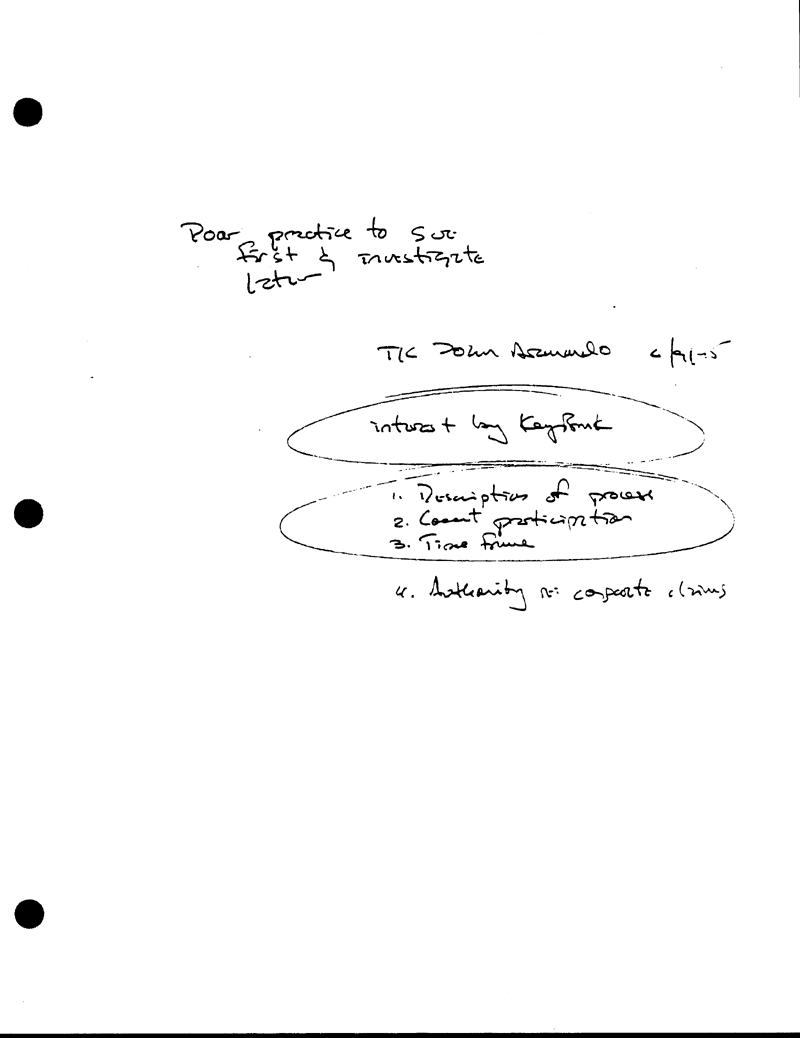 Poor practice to sue
first & investigate
later
T/C John
interest by KeyBank
1. Description of process
2. Current participation
3. Time frame
4. Authority re: corporate claims